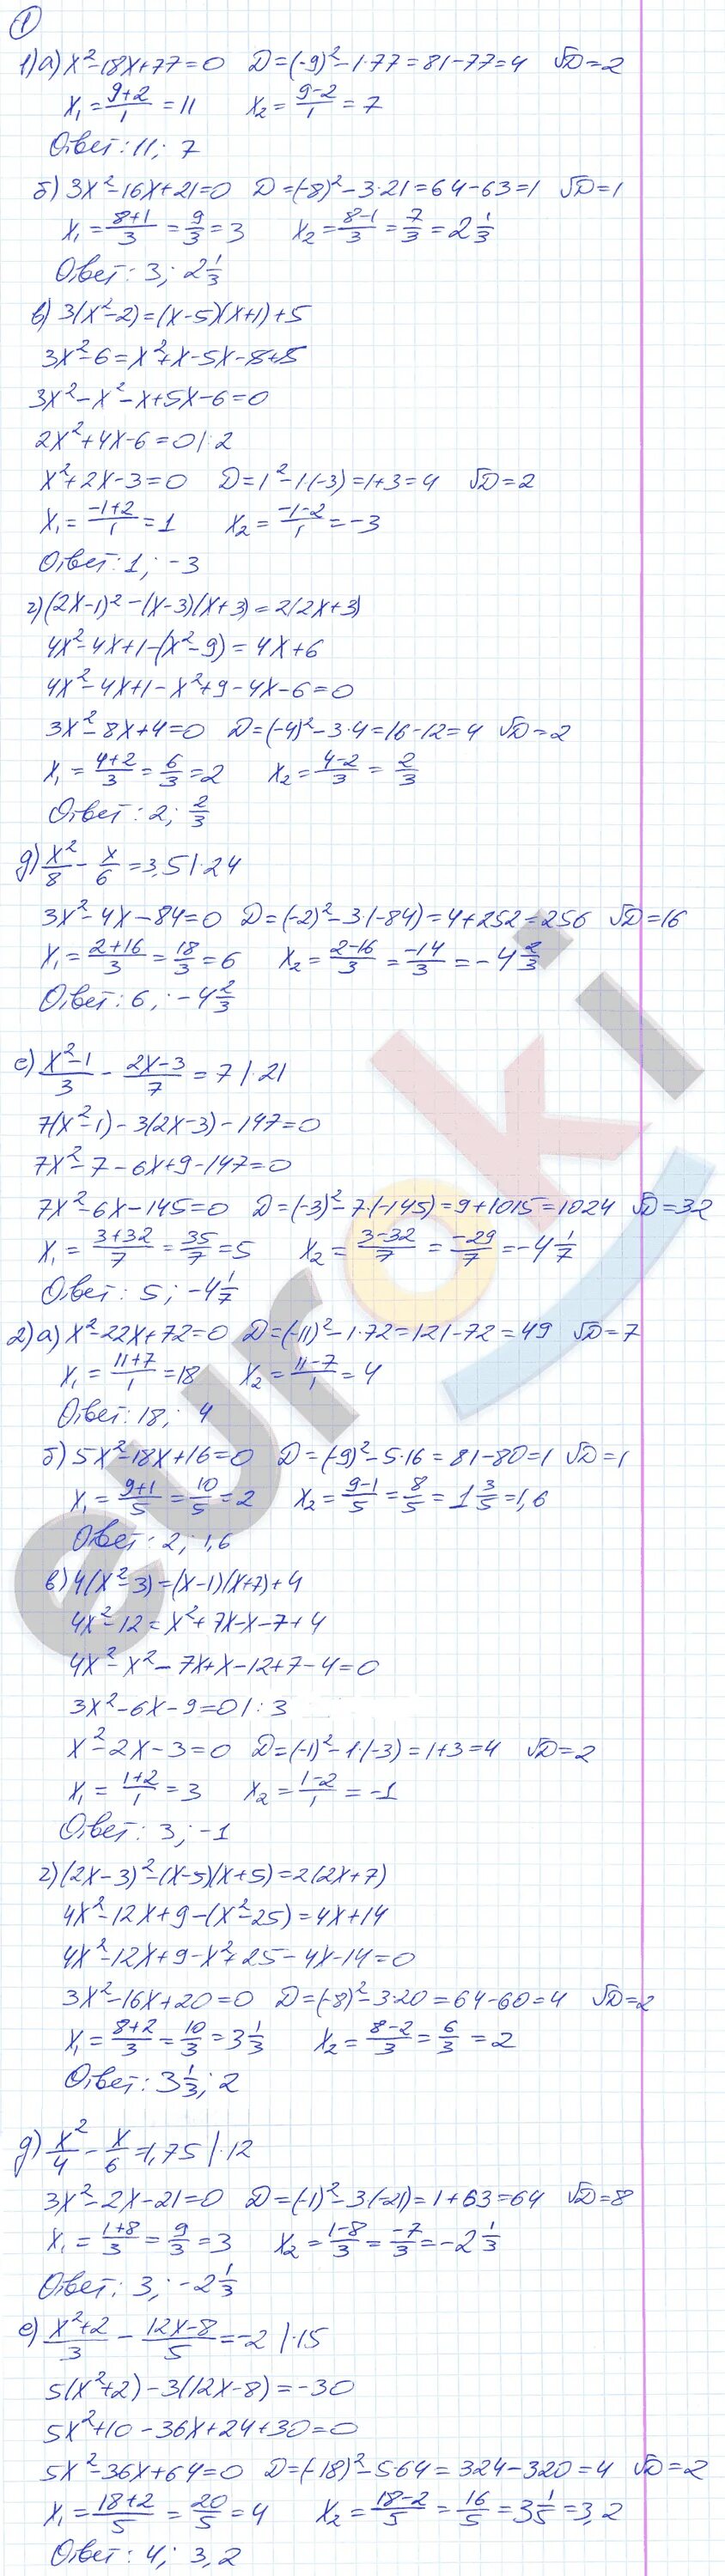 1
1) а) x²-18x+77=0 D=(-9)²-1·77=81-77=4 √D=2
x₁=(9+2)/1=11 x₂=(9-2)/1=7
Ответ: 11; 7
б) 3x²-16x+21=0 D=(-8)²-3·21=64-63=1 √D=1
x₁=(8+1)/3=9/3=3 x₂=(8-1)/3=7/3=2 1/3
Ответ: 3; 2 1/3
в) 3(x²-2)=(x-5)(x+1)+5
3x²-6=x²+x-5x-5+5
3x²-x²-x+5x-6=0
2x²+4x-6=0 |:2
x²+2x-3=0 D=1²-1(-3)=1+3=4 √D=2
x₁=(-1+2)/1=1 x₂=(-1-2)/1=-3
Ответ: 1; -3
г) (2x-1)²-(x-3)(x+3)=2(2x+3)
4x²-4x+1-(x²-9)=4x+6
4x²-4x+1-x²+9-4x-6=0
3x²-8x+4=0 D=(-4)²-3·4=16-12=4 √D=2
x₁=(4+2)/3=6/3=2 x₂=(4-2)/3=2/3
Ответ: 2; 2/3
д) x²/8-x/6=3,5 |·24
3x²-4x-84=0 D=(-2)²-3·(-84)=4+252=256 √D=16
x₁=(2+16)/3=18/3=6 x₂=(2-16)/3=-14/3=-4 2/3
Ответ: 6; -4 2/3
е) (x²-1)/3-(2x-3)/7=7 |·21
7(x²-1)-3(2x-3)-147=0
7x²-7-6x+9-147=0
7x²-6x-145=0 D=(-3)²-7·(-145)=9+1015=1024 √D=32
x₁=(3+32)/7=35/7=5 x₂=(3-32)/7=-29/7=-4 1/7
Ответ: 5; -4 1/7
2) а) x²-22x+72=0 D=(-11)²-1·72=121-72=49 √D=7
x₁=(11+7)/1=18 x₂=(11-7)/1=4
Ответ: 18; 4
б) 5x²-18x+16=0 D=(-9)²-5·16=81-80=1 √D=1
x₁=(9+1)/5=10/5=2 x₂=(9-1)/5=8/5=1 3/5=1,6
Ответ: 2; 1,6
в) 4(x²-3)=(x-1)(x+7)+4
4x²-12=x²+7x-x-7+4
4x²-x²-7x+x-12+7-4=0
3x²-6x-9=0 |:3
x²-2x-3=0 D=(-1)²-1·(-3)=1+3=4 √D=2
x₁=(1+2)/1=3 x₂=(1-2)/1=-1
Ответ: 3; -1
г) (2x-3)²-(x-5)(x+5)=2(2x+7)
4x²-12x+9-(x²-25)=4x+14
4x²-12x+9-x²+25-4x-14=0
3x²-16x+20=0 D=(-8)²-3·20=64-60=4 √D=2
x₁=(8+2)/3=10/3=3 1/3 x₂=(8-2)/3=6/3=2
Ответ: 3 1/3; 2
д) x²/4-x/6=1,75 |·12
3x²-2x-21=0 D=(-1)²-3(-21)=1+63=64 √D=8
x₁=(1+8)/3=9/3=3 x₂=(1-8)/3=-7/3=-2 1/3
Ответ: 3; -2 1/3
е) (x²+2)/3-(12x-8)/5=-2 |·15
5(x²+2)-3(12x-8)=-30
5x²+10-36x+24+30=0
5x²-36x+64=0 D=(-18)²-5·64=324-320=4 √D=2
x₁=(18+2)/5=20/5=4 x₂=(18-2)/5=16/5=3 1/5=3,2
Ответ: 4; 3,2
euroki